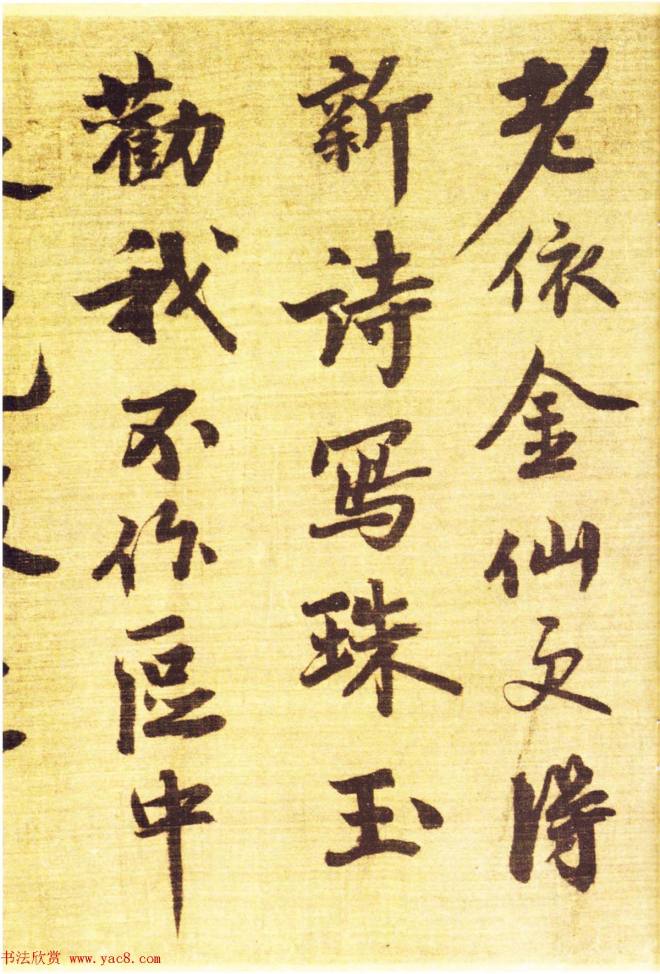 老依金仙更得
新詩寫珠玉
勸我不作區中
书法欣赏 www.yac8.com